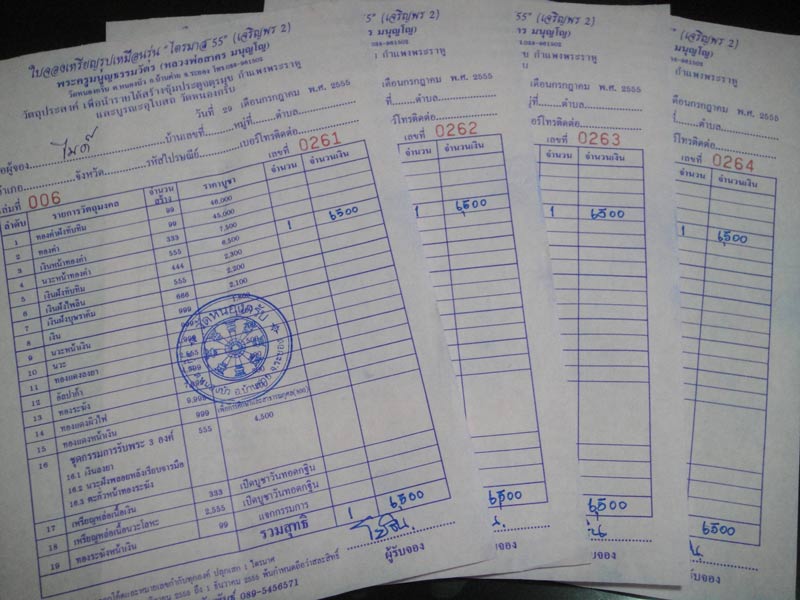 ใบจองเหรียญรูปเหมือนรุ่น "ไตรมาส 55" (เจริญพร 2)
พระครูมนูญธรรมวัตร (หลวงพ่อสาคร มนุญโญ)
วัตถุประสงค์ เพื่อนำรายได้สร้างซุ้มประตูจตุรมุข กำแพงพระราหู
และบูรณะอุโบสถ วัดหนองกรับ
วันที่ 29 เดือนกรกฎาคม พ.ศ. 2555
ชื่อผู้จอง ไมค์ บ้านเลขที่ หมู่ที่ ตำบล
อำเภอ จังหวัด รหัสไปรษณีย์ เบอร์โทรติดต่อ
เล่มที่ 006 เลขที่ 0261
ลำดับ รายการวัตถุมงคล จำนวนสร้าง ราคาบูชา จำนวน จำนวนเงิน
1 ทองคำฝังทับทิม 99 46,000
2 ทองคำ 99 45,000
3 เงินหน้าทองคำ 333 7,500
4 นวะหน้าทองคำ 555 6,500 1 6,500
5 เงินฝังทับทิม 444 2,300
6 เงินฝังไพลิน 555 2,200
7 เงินฝังบุษราคัม 666 2,100
8 เงิน 999
9 นวะหน้าเงิน
10 นวะ
11 ทองแดงลงยา
12 อัลปาก้า
13 ทองระฆัง
14 ทองแดงผิวไฟ 9,999
15 ทองแดงหน้าเงิน 999
16 ชุดกรรมการรับพระ 3 องค์ 555 4,500
16.1 เงินลงยา
16.2 นวะฝังพลอยหลังเรียบจารมือ
16.3 ตะกั่วหน้าทองระฆัง
17 เหรียญหล่อเนื้อเงิน 333 เปิดบูชาวันทอดกฐิน
18 เหรียญหล่อเนื้อนวะโลหะ 2,555 เปิดบูชาวันทอดกฐิน
19 ทองระฆังหน้าเงิน 99 แจกกรรมการ
รวมสุทธิ 1 6,500
ผู้รับจอง
089-5456571
55" (เจริญพร 2)
มนุญโญ)
กำแพงพระราหู
เดือนกรกฎาคม พ.ศ. 2555
ที่ ตำบล
เบอร์โทรติดต่อ
เลขที่ 0262
จำนวน จำนวนเงิน
1 6,500
6,500
ผู้รับจอง
55" (เจริญพร 2)
มนุญโญ)
กำแพงพระราหู
เดือนกรกฎาคม พ.ศ. 2555
ที่ ตำบล
เลขที่ 0263
จำนวน จำนวนเงิน
1 6,500
6,500
ผู้รับจอง
(เจริญพร 2)
มนุญโญ)
กำแพงพระราหู
เดือนกรกฎาคม พ.ศ. 2555
ตำบล
เลขที่ 0264
จำนวน จำนวนเงิน
1 6,500
6,500
ผู้รับจอง